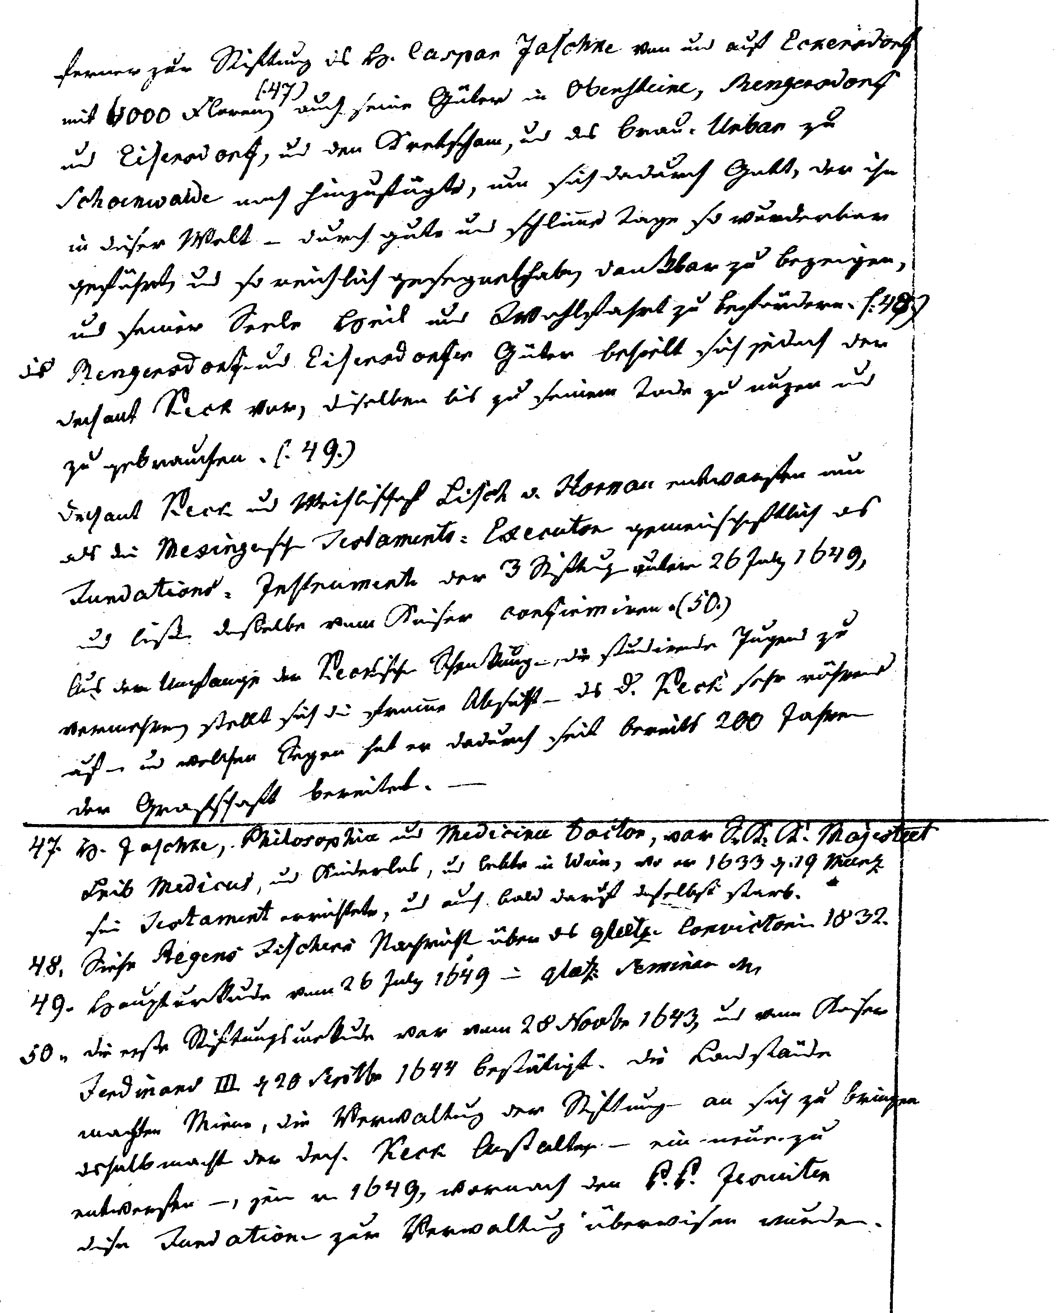 ferner zur Stiftung des H. Caspar Jaschke von und auf Eckersdorf
mit 6000 Floren (:47) auch seine Güter in Obersteine, Rengersdorf
und Eisersdorf, und den Kretscham, und das Brau-Urbar zu
Schoenwalde noch hinzufügte, um sich dadurch Gott, der ihn
in dieser Welt – durch gute und schlimme Tage so wunderbar
geführt und so reichlich gesegnet haben dankbar zu bezeigen,
und seiner Seele Heil und Wohlfahrt zu befördern. (:48.)
die Rengersdorf- und Eisersdorfer Güter behielt sich jedoch der
Dechant Keck vor, dieselben bis zu seinem Tode zu nuzen und
zu gebrauchen. (:49.)
Dechant Keck und Lisch v. Hornau entwarfen nun
als die Testaments-Executor gemeinschaftlich das
Fundations-Instrument der 3 Stiftung 26 July 1649,
und ließ dasselbe vom Kaiser confirmiren. (50.)
Aus dem Umfange der Keckische Schenkung –, die studirende Jugend zu
vermehren stellt sich die fromme Absicht – des D. Keck sehr rührend
auf – und welchen Segen hat er dadurch seit bereits 200 Jahren
der Grafschaft bereitet. —
47. H. Jaschke, Philosophia und Medicina Doctor, war K. K. Majestaet
Leib Medicus, und Kinderlos, und lebte in Wien, wo er 1633 d. 19 Maerz
sein Testament errichtete, und auch bald darauf daselbst starb. *
48. Siehe Regens Fischers Nachricht über das glatz. Convictorii 1832.
49. Haupturkunde vom 26 July 1649 – glatz. Seminar
50. die erste Stiftungsurkunde war vom 28 Novbr 1643, und vom Kaiser
Ferdinand III d 20 1644 bestätigt. die Landstände
machten Miene, die Verwaltung der Stiftung – an sich zu bringen
deshalb macht der Dech. Keck Anstalten – ein neue zu
entwerfen –, 1649, wornach den P.P. Jesuiten
diese Fundation zur Verwaltung überwiesen wurden.